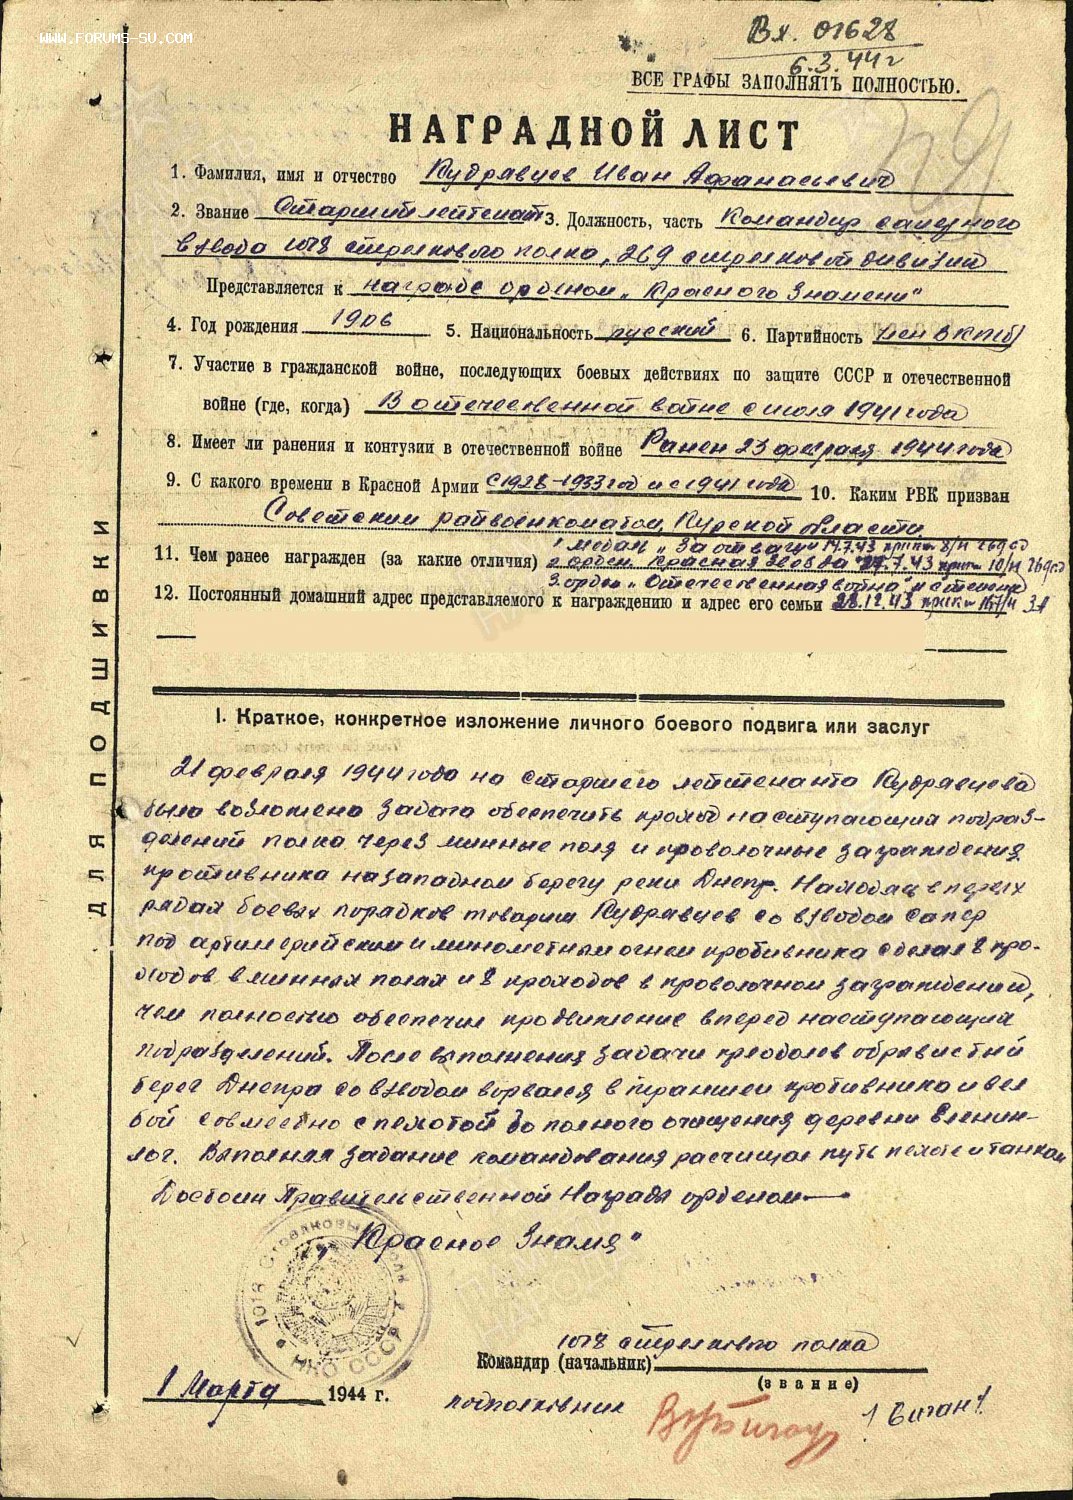 WWW.FORUMS-SU.COM
Вх. 01628
6.3.44 г
ВСЕ ГРАФЫ ЗАПОЛНЯТЬ ПОЛНОСТЬЮ.
НАГРАДНОЙ ЛИСТ
1. Фамилия, имя и отчество Кудрявцев Иван Афанасьевич
2. Звание Старший лейтенант 3. Должность, часть Командир саперного
взвода 1018 стрелкового полка, 269 стрелковой дивизии
Представляется к награде орденом „Красного Знамени"
4. Год рождения 1906 5. Национальность русский 6. Партийность член ВКП(б)
7. Участие в гражданской войне, последующих боевых действиях по защите СССР и отечественной
войне (где, когда) В отечественной войне с июля 1941 года
8. Имеет ли ранения и контузии в отечественной войне Ранен 23 февраля 1944 года
9. С какого времени в Красной Армии с 1928-1933 год и с 1941 года 10. Каким РВК призван
Советским райвоенкоматом, Курской области
1 медаль „За отвагу" 14.7.43 приказ 8/н 269 сд
11. Чем ранее награжден (за какие отличия) 2 орден „Красная Звезда" 27.7.43 приказ 10/н 269 сд
3. орден „Отечественная война" II степени
12. Постоянный домашний адрес представляемого к награждению и адрес его семьи 28.12.43 приказ 167/н 3А
ДЛЯ ПОДШИВКИ
I. Краткое, конкретное изложение личного боевого подвига или заслуг
21 февраля 1944 года на старшего лейтенанта Кудрявцева
была возложена задача обеспечить проход наступающих подраз-
делений полка через минные поля и проволочные заграждения
противника на западном берегу реки Днепр. Находясь в первых
рядах боевых порядков товарищ Кудрявцев со взводом сапер
под артиллерийским и минометным огнем противника сделал 8 про-
ходов в минных полях и 8 проходов в проволочном заграждении,
чем полностью обеспечил продвижение вперед наступающих
подразделений. После выполнения задачи преодолев обрывистый
берег Днепра со взводом ворвался в траншеи противника и вел
бой совместно с пехотой до полного очищения деревни
лог. Выполняя задание командования расчищал путь пехоте и танкам
Достоин Правительственной Награды орденом —
„Красное Знамя"
1018 Стрелковый полк
НКО СССР
1018 стрелкового полка
Командир (начальник)
(звание)
1 Марта 1944 г.
подполковник